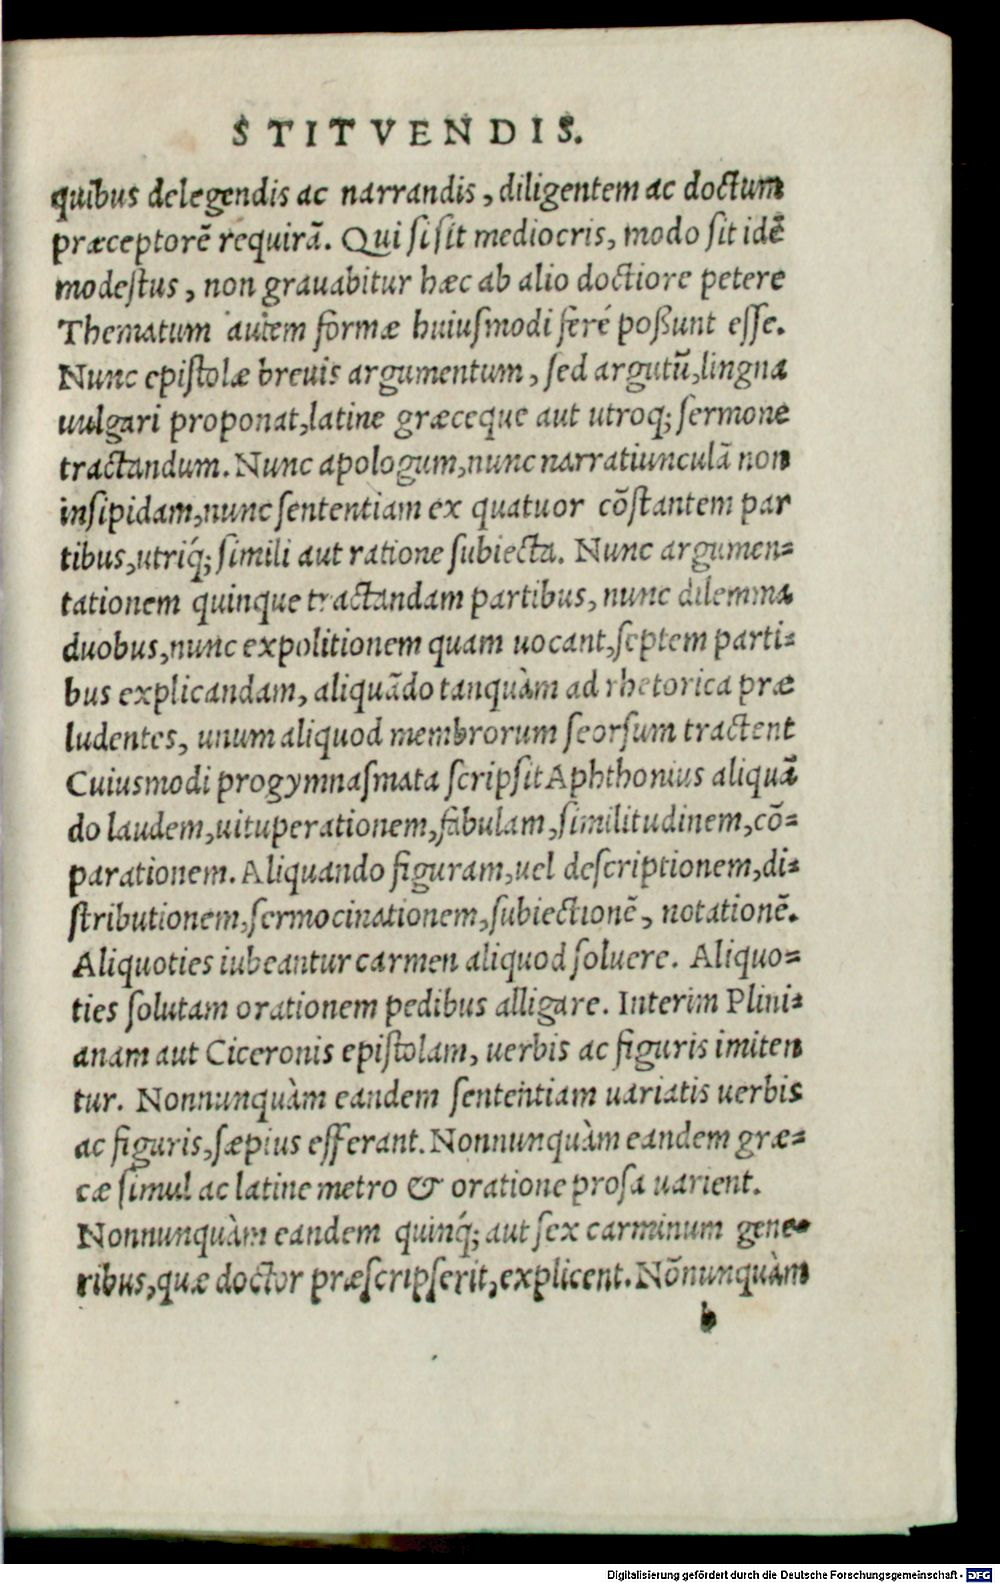 STITVENDIS.
quibus delegendis ac narrandis, diligentem ac doctum
præceptorē requirā. Qui si sit mediocris, modo sit idē
modestus, non grauabitur hæc ab alio doctiore petere
Thematum autem formæ huiusmodi feré poßunt esse.
Nunc epistolæ breuis argumentum, sed argutū, lingna
uulgari proponat, latine græceque aut utroq; sermone
tractandum. Nunc apologum, nunc narratiunculā non
insipidam, nunc sententiam ex quatuor cōstantem par
tibus, utriq́; simili aut ratione subiecta. Nunc argumen-
tationem quinque tractandam partibus, nunc dilemma
duobus, nunc expolitionem quam uocant, septem parti-
bus explicandam, aliquādo tanquàm ad rhetorica præ
ludentes, unum aliquod membrorum seorsum tractent
Cuiusmodi progymnasmata scripsit Aphthonius aliquā
do laudem, uituperationem, fabulam, similitudinem, cō-
parationem. Aliquando figuram, uel descriptionem, di-
stributionem, sermocinationem, subiectionē, notationē.
Aliquoties iubeantur carmen aliquod soluere. Aliquo-
ties solutam orationem pedibus alligare. Interim Plini-
anam aut Ciceronis epistolam, uerbis ac figuris imiten
tur. Nonnunquàm eandem sententiam uariatis uerbis
ac figuris, sæpius efferant. Nonnunquàm eandem græ-
cæ simul ac latine metro & oratione prosa uarient.
Nonnunquàm eandem quinq́; aut sex carminum gene-
ribus, quæ doctor præscripserit, explicent. Nōnunquàm
b
Digitalisierung gefördert durch die Deutsche Forschungsgemeinschaft - DFG